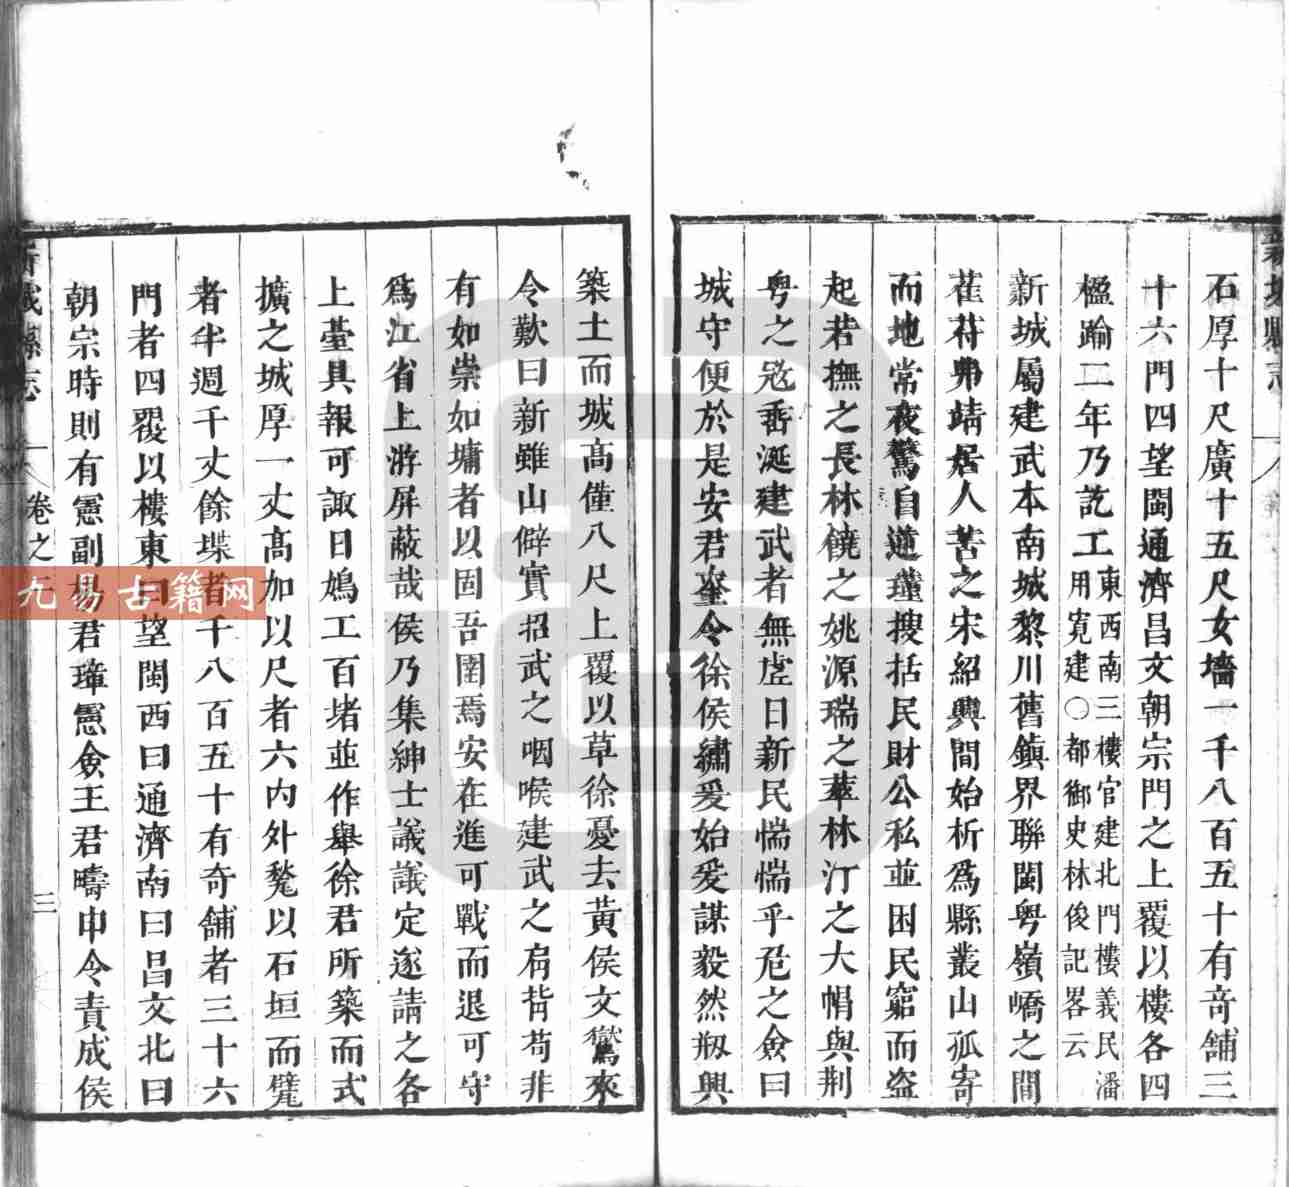 石厚十尺廣十五尺女墻一千八百五十有奇舖三
十六門四望閩通濟昌文朝宗門之上覆以樓各四
楹踰二年乃訖工東西南三樓官建北門樓義民潘
用寬建〇都御史林俊記畧云
新城屬建武本南城黎川舊鎮界聯閩粤嶺嶠之間
萑苻弗靖居人苦之宋紹興間始析爲縣叢山孤寄
而地常夜驚自遒瑾搜括民財公私並困民窮而盗
起若撫之長林饒之姚源瑞之華林汀之大帽與荆
粤之冦垂涎建武者無虗日新民惴惴乎危之僉曰
城守便於是安君奎令徐侯繡爰始爰謀毅然剏興
築土而城高僅八尺上覆以草徐憂去黄侯文鸑來
令歎曰新雖山僻實招武之咽喉建武之肩背苟非
有如崇如墉者以固吾圉焉安在進可戰而退可守
爲江省上游屏蔽哉侯乃集紳士議議定遂請之各
上臺具報可諏日鳩工百堵並作舉徐君所築而式
擴之城厚一丈高加以尺者六内外甃以石垣而甓
者半週千丈餘堞者千八百五十有奇舖者三十六
門者四覆以樓東曰望閩西曰通濟南曰昌文北曰
朝宗時則有憲副楊君璋憲僉王君疇申令責成侯
新城縣志
卷之
三
九易古籍网